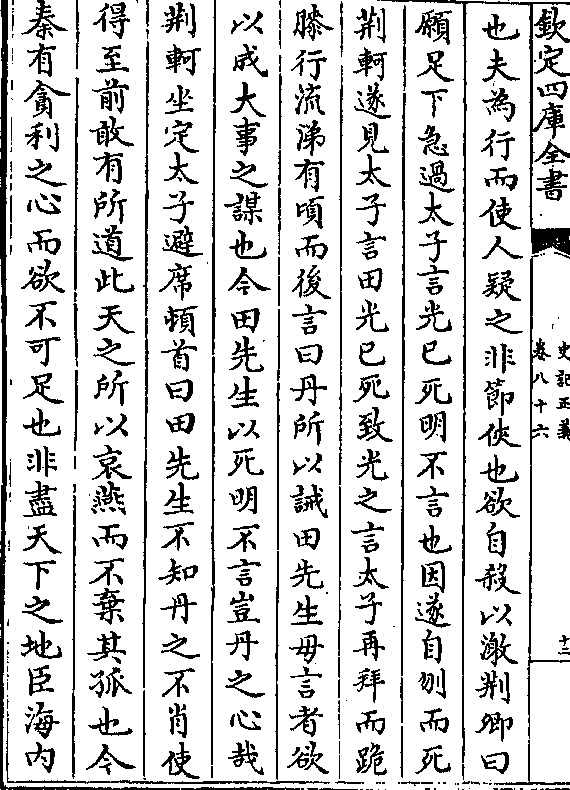 欽定四庫全書
史記正義
卷八十六
十二
也夫為行而使人疑之非節俠也欲自殺以激荆卿曰
願足下急過太子言光已死明不言也因遂自刎而死
荆軻遂見太子言田光已死致光之言太子再拜而跪
膝行流涕有頃而後言曰丹所以誡田先生毋言者欲
以成大事之謀也今田先生以死明不言豈丹之心哉
荆軻坐定太子避席頓首曰田先生不知丹之不肖使
得至前敢有所道此天之所以哀燕而不棄其孤也今
秦有貪利之心而欲不可足也非盡天下之地臣海内